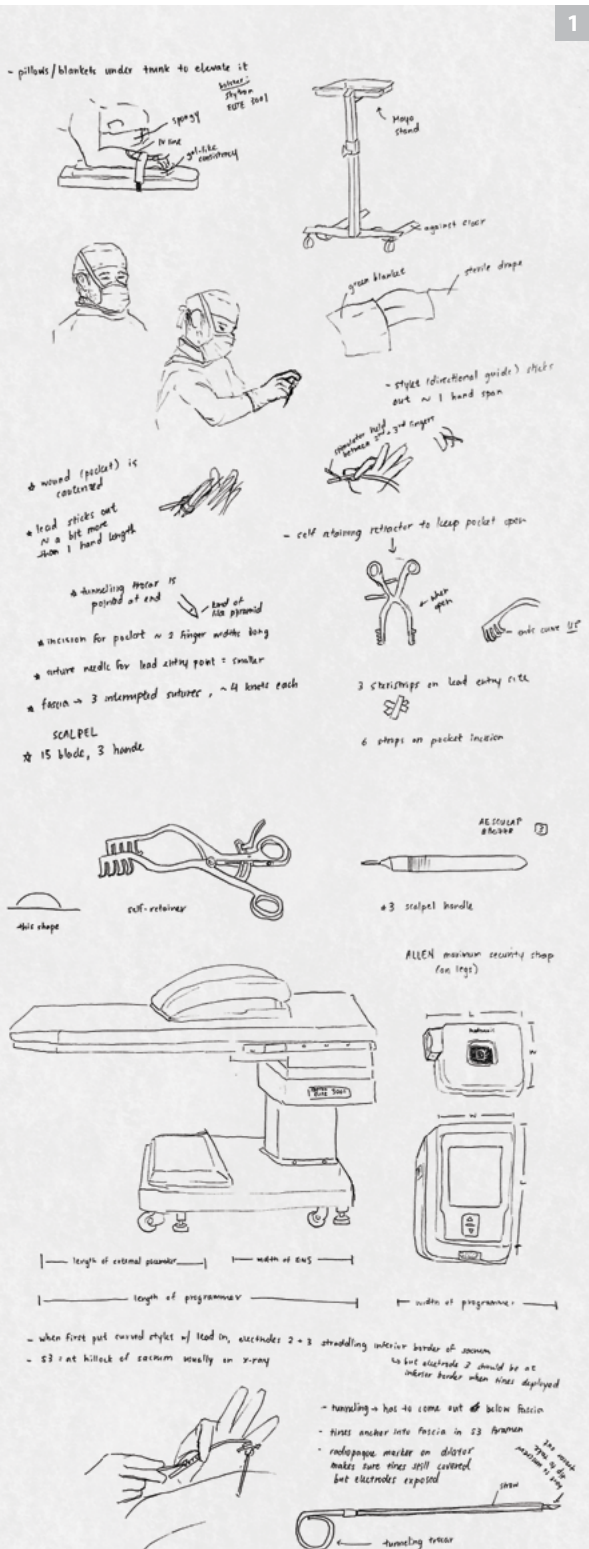 1
- pillows/blankets under trunk to elevate it
spongy
IV line
gel-like
consistency
Mayo
stand
against floor
green blanket
sterile drape
- stylet (directional guide) sticks
out ~ 1 hand span
stimulator held
between 2nd + 3rd fingers
* wound (pocket) is
cauterized
* lead sticks out
~ a bit more
than 1 hand length
- self retaining retractor to keep pocket open
when
open
ends curve UP
* tunneling trocar is
pointed at end
kind of
like pyramid
* incision for pocket ~ 2 finger widths long
* suture needle for lead entry point = smaller
* fascia → 3 interrupted sutures, ~4 knots each
SCALPEL
* 15 blade, 3 handle
3 steristrips on lead entry site
6 strips on pocket incision
this shape
self-retainer
AESCULAP
3
#3 scalpel handle
ALLEN maximum security strap
(on legs)
L
W
W
L
length of external pacemaker
width of ENS
length of programmer
width of programmer
- when first put curved stylet w/ lead in, electrodes 2 + 3 straddling inferior border of sacrum
↳ but electrode 3 should be at
inferior border when tines deployed
- S3: at hillock of sacrum usually on x-ray
- tunneling → has to come out below fascia
- tines anchor into fascia in S3 foramen
- radiopaque marker on dilator
makes sure tines still covered
but electrodes exposed
straw
tunneling trocar